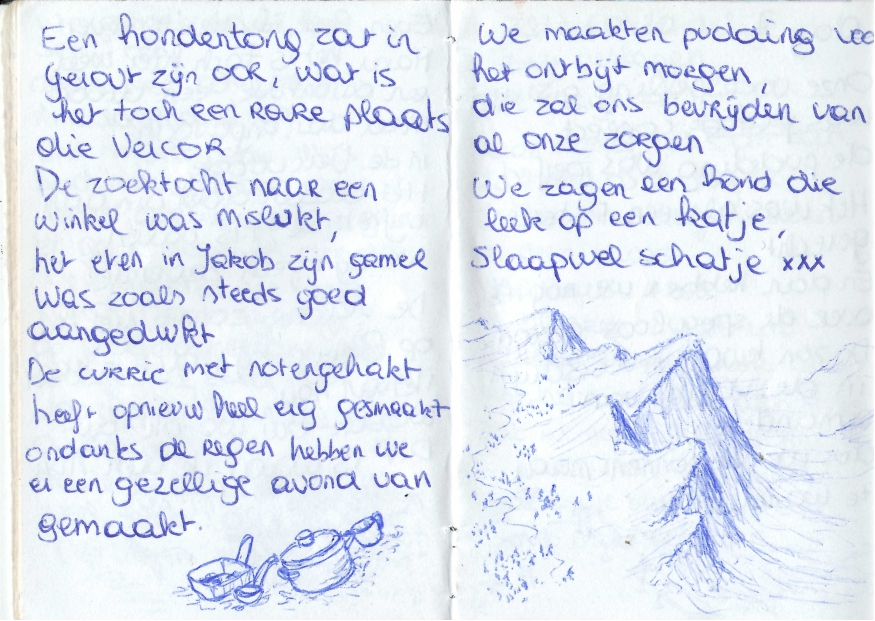 Een hondentong zat in
Gerout zijn oor, wat is
het toch een rare plaats
die Vercor
De zoektocht naar een
winkel was mislukt,
het eten in Jakob zijn gamel
was zoals steeds goed
aangedukt
De currie met notengehakt
heeft opnieuw heel erg gesmaakt
ondanks de regen hebben we
er een gezellige avond van
gemaakt.
We maakten pudding
het ontbijt morgen,
die zal ons bevrijden van
al onze zorgen
We zagen een hond die
leek op een katje,
Slaapwel schatje xxx